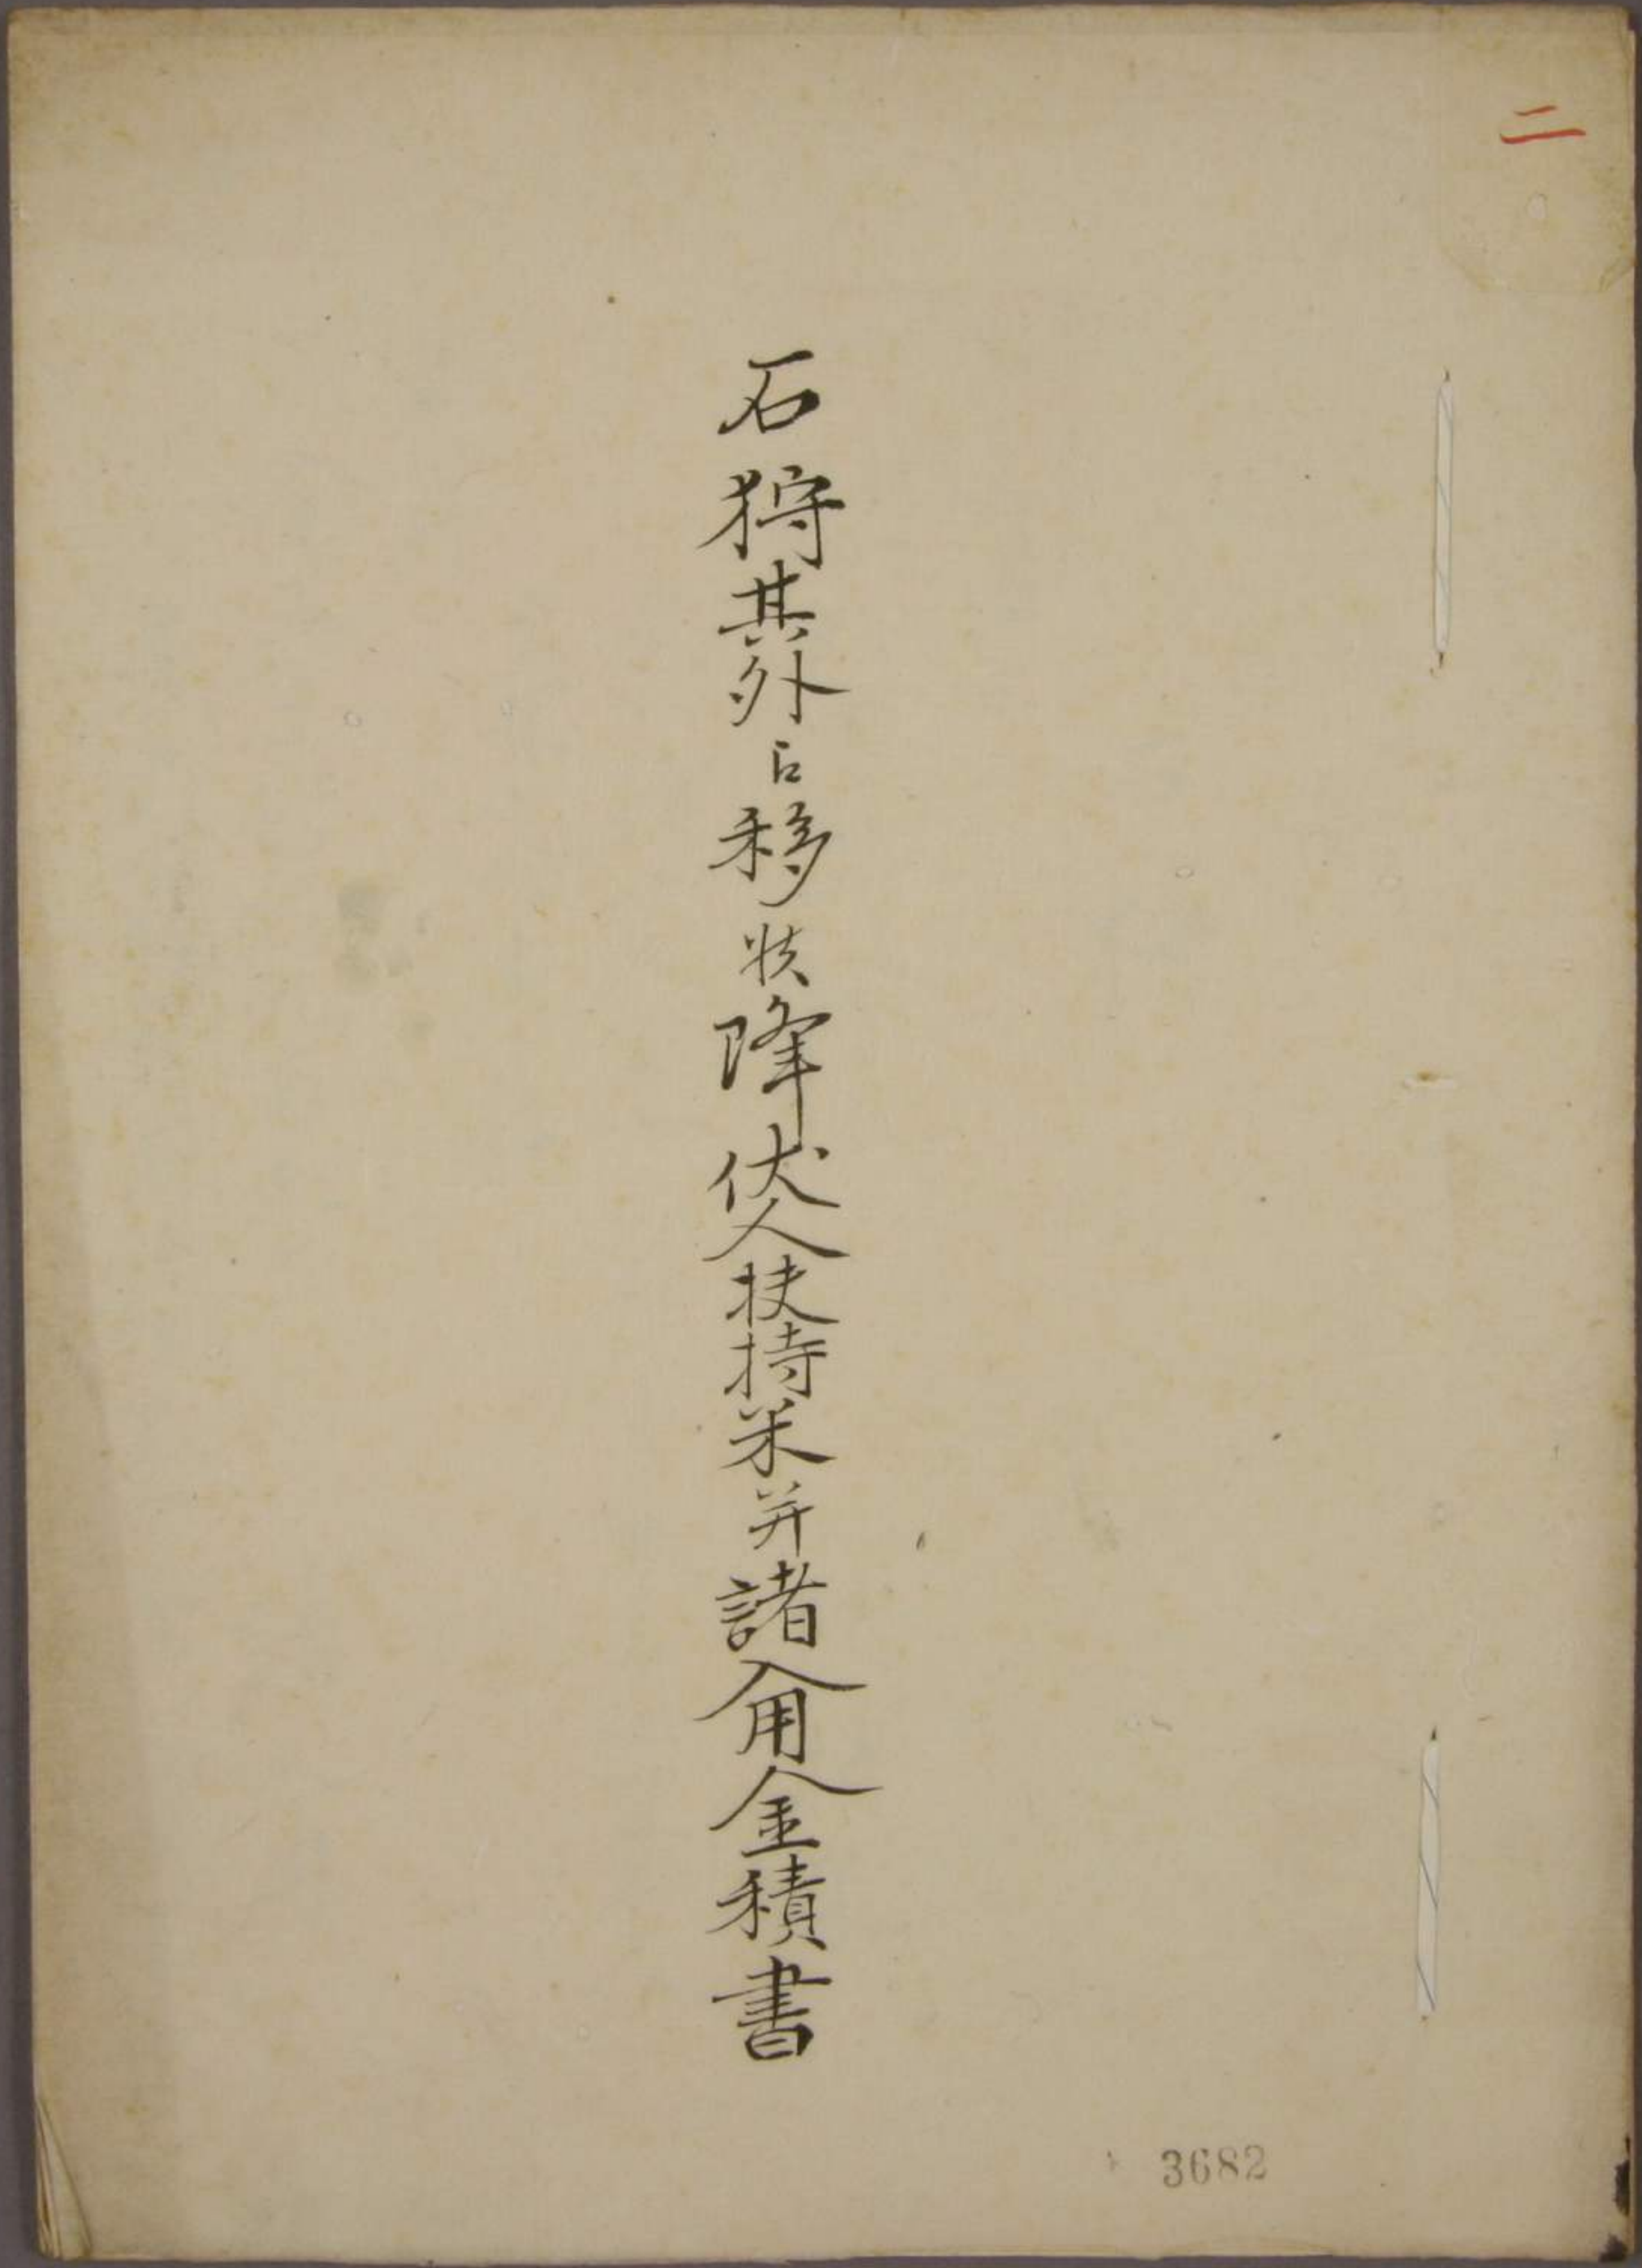 二
石狩其外ㇸ移候降伏人扶持米并諸入用金積書
3682